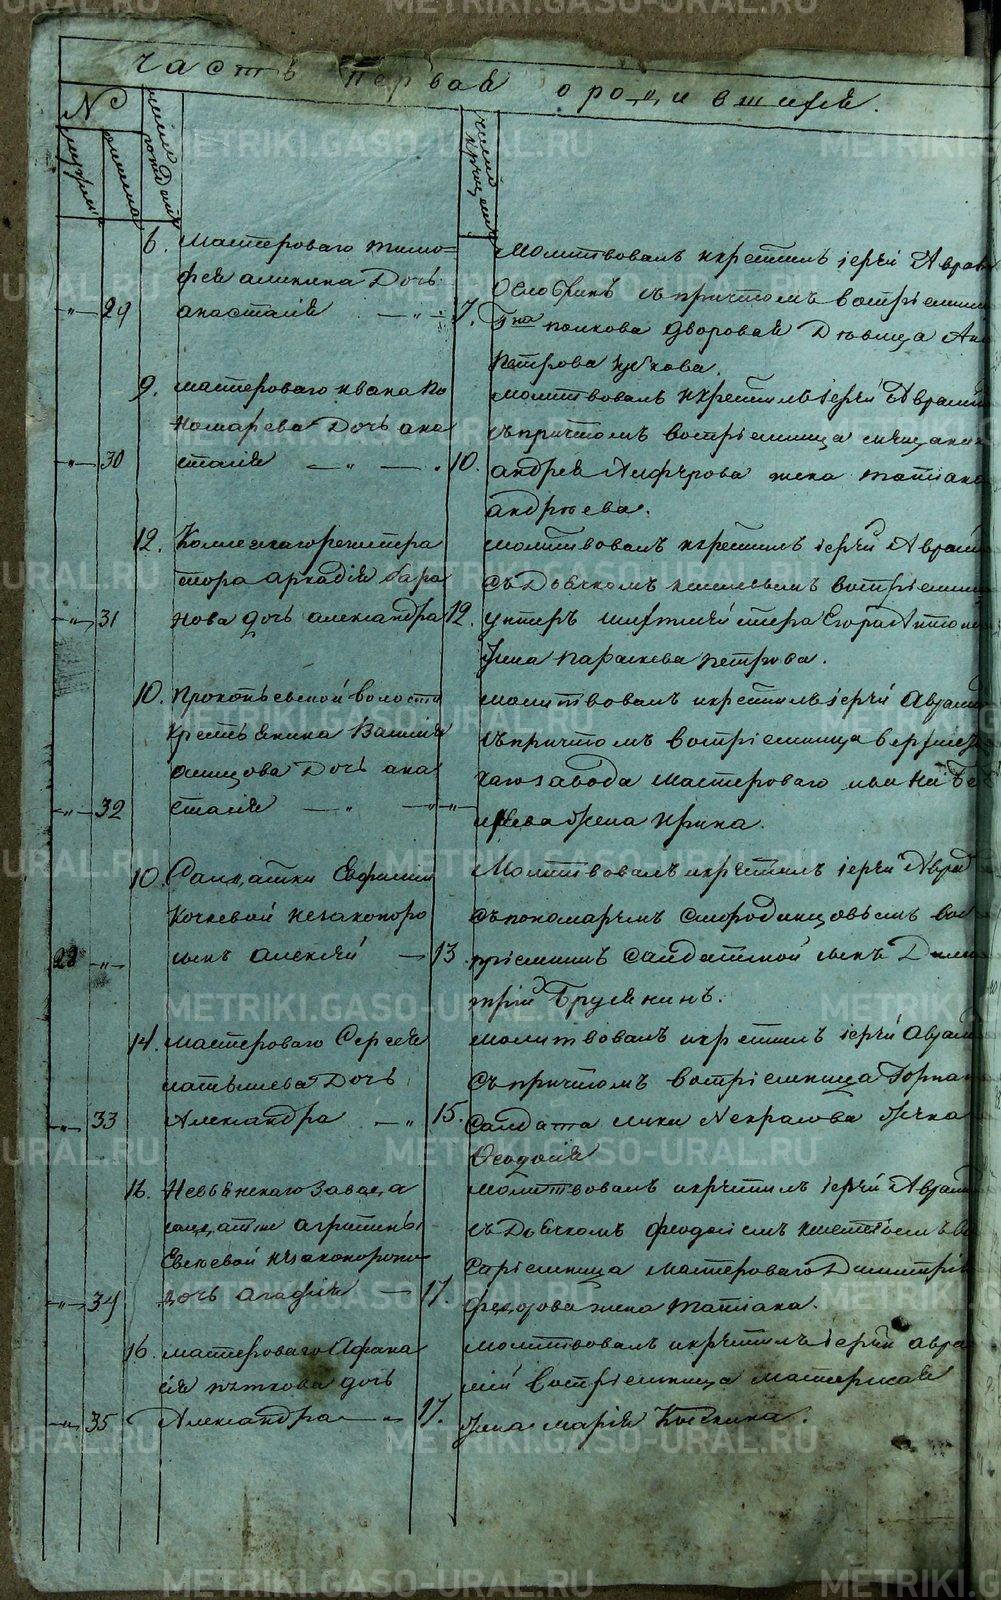 часть первая о родившихся.
№
мужеска
женска
число рождения
число крещения
6. мастероваго тимо=
фея аликина Дочь
„ 29 анастасия „ 7.
Молитвовалъ и крестилъ iерей Аврам
съ причтомъ воспрiемни
полкова дворовая Девица Ан
Петрова
9. мастероваго ивана По
номарева Дочь ана
„ 30 стасия „ 10.
молитвовалъ и крестилъ iерей Аврамий
съ причтомъ воспрiемница мещанина
андрея Алферова жена татiана
андреева.
12. Коллежскаго регистра
тора аркадия бара
„ 31 нова дочь александра 12.
молитвовалъ и крестилъ iерей Аврами
съ Дьячкомъ воспрiемни
унтеръ шихтмейстера Егора Антоно
жена параскева петрова.
10. прокопьевской волости
крестьянина Васил
Дочь ана
„ 32 стасия „ „
молитвовалъ и крестилъ iерей Аврами
съ причтомъ воспрiемница верхнеу
каго завода мастероваго
жена Ирина.
10. Салдатки Евфимии
Кочневой незаконоро
28 „ сынъ алексей 13
Молитвовалъ и крестилъ iерей Аврам
съ пономаремъ Смородинцовымъ вос
прiемникъ салдатской сынъ Дими
трiй Брусянинъ.
14. мастероваго Сергея
латышева Дочь
„ 33 Александра „ 15.
молитвовалъ и крестилъ iерей Аврами
съ причтомъ воспрiемница Горнаго
Салдата луки Некрасова дочка
Феодосия
16. Невьянскаго завода
салдатки агрипины
Евсеевой незаконорожд
„ 34 дочь агафия 17
молитвовалъ и крестилъ iерей Аврам
съ Дьячкомъ феодосiемъ во
спрiемница мастероваго Димитрiя
федорова жена татiана.
16. мастероваго Афана
сiя пяткова дочь
„ 35 Александра „ 17.
молитвовалъ и крестилъ iерей авра
мiй воспрiемница мастерская
жена мария
METRIKI.GASO-URAL.RU